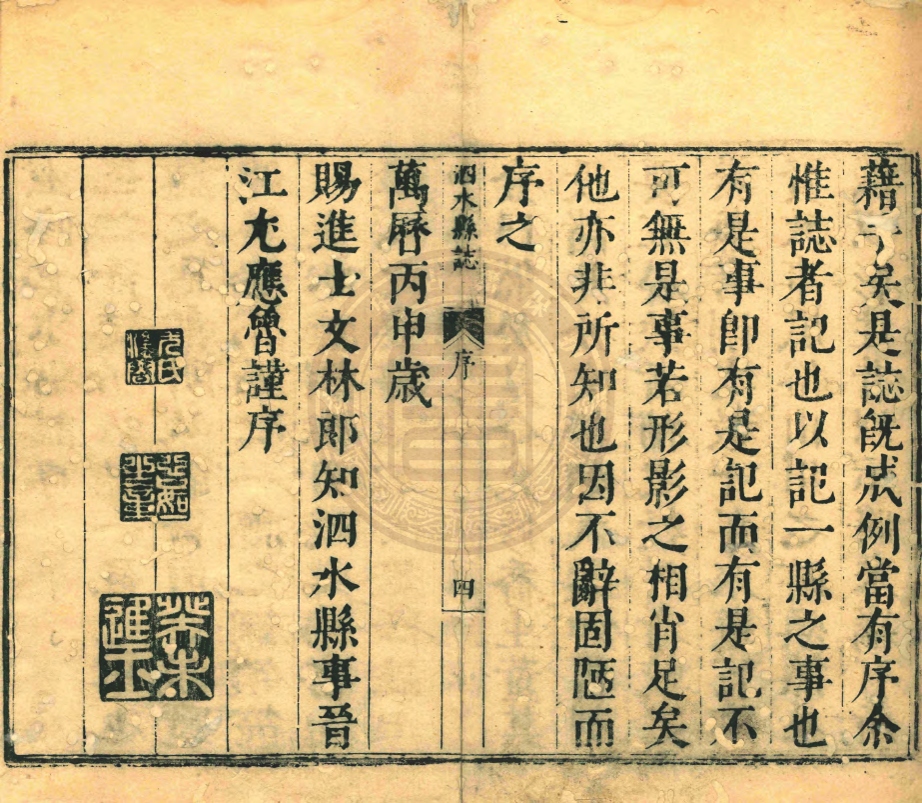 藉于矣是誌既成例當有序余
惟誌者記也以記一縣之事也
有是事卽有是記而有是記不
可無是事若形影之相肖足矣
他亦非所知也因不辭固陋而
序之
泗水縣誌
序
四
萬曆丙申歲
賜進士文林郎知泗水縣事晉
江尤應魯謹序
尤氏
進士